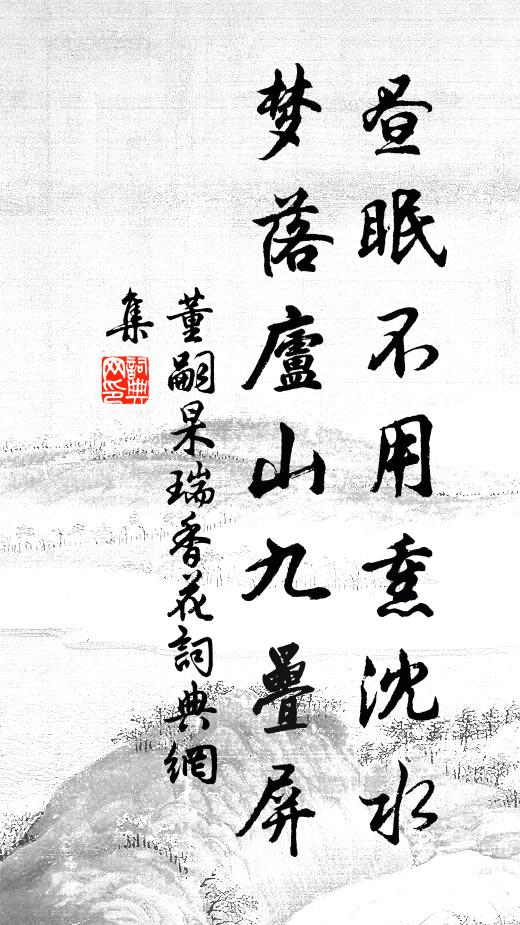 昼眠不用熏沈水
梦落廬山九疊屏
董嗣杲瑞香花詞典網
集
詞典
网印